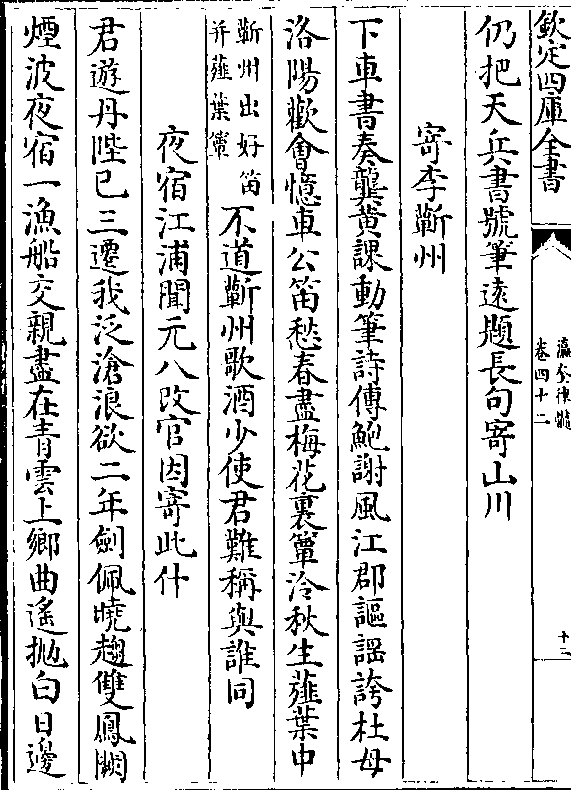 欽定四庫全書
瀛奎律髓
卷四十二
十二
仍把天兵書號筆遠題長句寄山川
寄李蘄州
下車書奏龔黄課動筆詩傳鮑謝風江郡謳謡誇杜母
洛陽歡會憶車公笛愁春盡梅花裏簟冷秋生薤葉中
蘄州出好笛
并薤葉簟
不道蘄州歌酒少使君難稱與誰同
夜宿江浦聞元八改官因寄此什
君遊丹陛已三遷我泛滄浪欲二年劍佩曉趨雙鳳闕
煙波夜宿一漁船交親盡在青雲上鄉曲遙抛白日邊